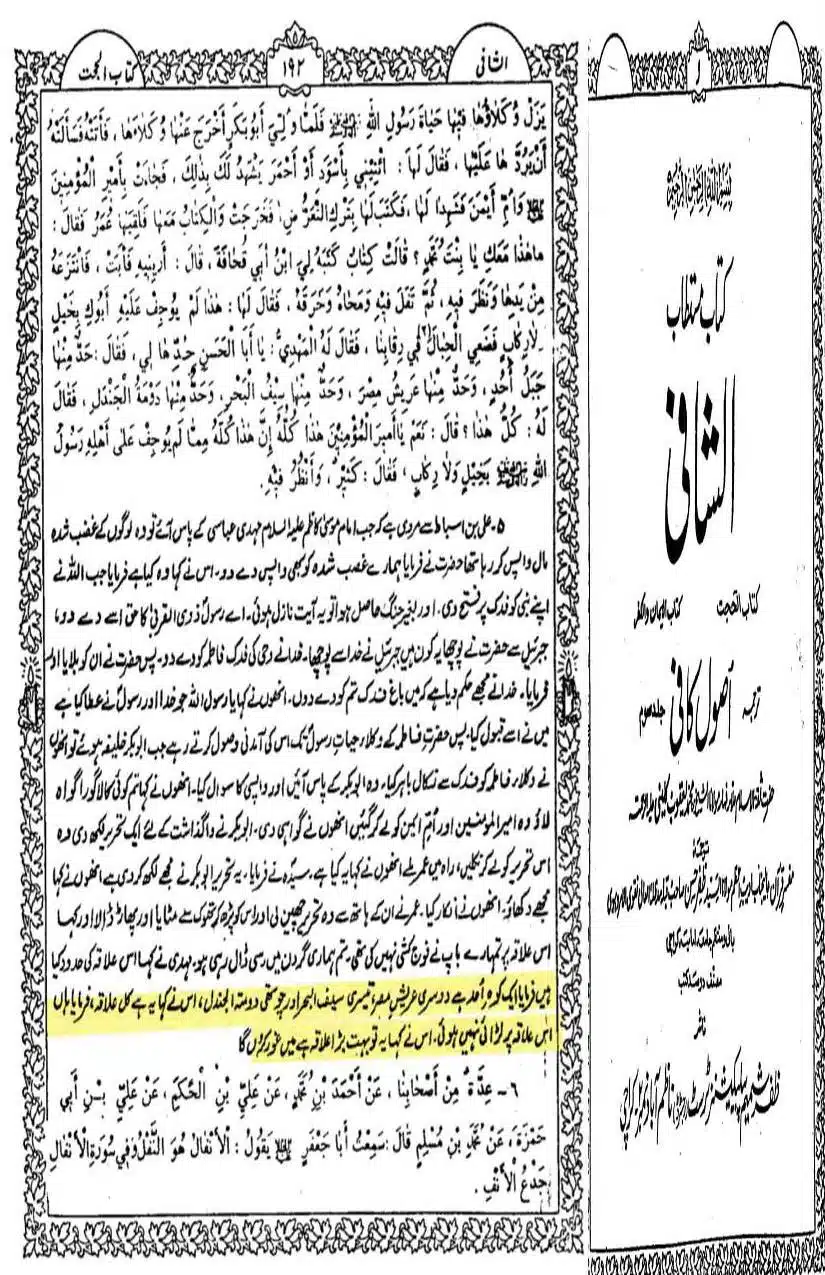 الشافی
۱۹۲
کتاب الحجت
يَزَلْ وُكَلاؤُها فيها حَياةَ رَسُولِ اللهِ فَلَمّا وُلِّيَ أَبُوبَكْرٍ أَخْرَجَ عَنْها وُكَلاءَها ، فَأَتَتْهُ فَسَأَلَتْهُ
أَنْ يَرُدَّها عَلَيْها ، فَقالَ لَها : ائْتيني بِأَسْوَدَ أَوْ أَحْمَرَ يَشْهَدُ لَكِ بِذٰلِكَ ، فَجاءَتْ بِأَميرِ الْمُؤْمِنينَ
وَاُمِّ أَيْمَنَ فَشَهِدا لَها ، فَكَتَبَ لَها بِتَرْكِ التَّعَرُّضِ ، فَخَرَجَتْ وَالْكِتابُ مَعَها فَلَقِيَها عُمَرُ فَقالَ :
ماهٰذا مَعَكِ يا بِنْتَ مُحَمَّدٍ ؟ قالَتْ كِتابٌ كَتَبَهُ لِيَ ابْنُ أَبي قُحافَةَ ، قالَ : أَرينيهِ فَأَبَتْ ، فَانْتَزَعَهُ
مِنْ يَدِها وَنَظَرَ فيهِ ، ثُمَّ تَفَلَ فيهِ وَمَحاهُ وَخَرَقَهُ ، فَقالَ لَها : هٰذا لَمْ يُوجِفْ عَلَيْهِ أَبُوكِ بِخَيْلٍ
وَلارِكابٍ فَضَعِي الْحِبالَ في رِقابِنا ، فَقالَ لَهُ الْمَهْدِيُّ : يا أَبَا الْحَسَنِ حُدَّها لي ، فَقالَ : حَدٌّ مِنْها
جَبَلُ اُحُدٍ ، وَحَدٌّ مِنْها عَريشُ مِصْرَ ، وَحَدٌّ مِنْها سيفُ الْبَحْرِ ، وَحَدٌّ مِنْها دَوْمَةُ الْجَنْدَلِ ، فَقالَ
لَهُ : كُلُّ هٰذا ؟ قالَ : نَعَمْ يا أَميرَ الْمُؤْمِنينَ هٰذا كُلُّهُ إِنَّ هٰذا كُلَّهُ مِمّا لَمْ يُوجِفْ عَلىٰ أَهْلِهِ رَسُولُ
اللهِ بِخَيْلٍ وَلا رِكابٍ ، فَقالَ : كَثيرٌ ، وَأَنْظُرُ فيهِ.
۵- علی بن اسباط سے مروی ہے کہ جب امام موسیٰ کاظم علیہ السلام مہدی عباسی کے پاس آئے تو وہ لوگوں کے غصب شدہ
مال واپس کر رہا تھا حضرت نے فرمایا ہمارے غصب شدہ کو بھی واپس دے دو۔ اس نے کہا وہ کیا ہے فرمایا جب اللہ نے
اپنے نبی کو فدک پر فتح دی۔ اور بغیر جنگ حاصل ہوا تو یہ آیت نازل ہوئی۔ اے رسول ذوی القربیٰ کا حق اسے دے دو،
جبرئیل سے حضرت نے پوچھا یہ کون ہیں جبرئیل نے خدا سے پوچھا۔ خدا نے وحی کی فدک فاطمہ کو دے دو۔ پس حضرت نے ان کو بلایا اور
فرمایا۔ خدا نے مجھے حکم دیا ہے کہ میں باغ فدک تم کو دے دوں۔ انھوں نے کہا یا رسول اللہ جو خدا اور رسول نے عطا کیا ہے
میں نے اسے قبول کیا۔ پس حضرت فاطمہ کے وکلاء حیات رسول تک اس کی آمدنی وصول کرتے رہے جب ابوبکر خلیفہ ہوئے تو انھوں
نے وکلاء فاطمہ کو فدک سے نکال باہر کیا۔ وہ ابوبکر کے پاس آئیں اور واپسی کا سوال کیا۔ انھوں نے کہا تم کوئی کالا گورا گواہ
لاؤ وہ امیر المومنین اور ام ایمن کو لے کر گئیں انھوں نے گواہی دی۔ ابوبکر نے واگذاشت کے لئے ایک تحریر لکھ دی وہ
اس تحریر کو لے کر نکلیں، راہ میں عمر ملے انھوں نے کہا یہ کیا ہے۔ سیدہ نے فرمایا۔ یہ تحریر ابوبکر نے مجھے لکھ کر دی ہے انھوں نے کہا
مجھے دکھاؤ۔ انھوں نے انکار کیا۔ عمر نے ان کے ہاتھ سے وہ تحریر چھین لی اور اس کو پڑھ کر تھوک سے مٹایا اور پھاڑ ڈالا اور کہا
اس علاقہ پر تمہارے باپ نے فوج کشی نہیں کی تھی۔ تم ہماری گردن میں رسی ڈال رہی ہو۔ مہدی نے کہا اس علاقہ کی حدود کیا
ہیں فرمایا ایک کوہ احد ہے دوسری عریش مصر، تیسری سیف البحر اور چوتھی دومتہ الجندل، اس نے کہا یہ ہے کل علاقہ، فرمایا ہاں
اس علاقہ پر لڑائی نہیں ہوئی۔ اس نے کہا یہ تو بہت بڑا علاقہ ہے میں غور کروں گا
٦- عِدَّةٌ مِنْ أَصْحابِنا ، عَنْ أَحْمَدَ بْنِ مُحَمَّدٍ ، عَنْ عَلِيِّ بْنِ الْحَكَمِ ، عَنْ عَلِيِّ بْنِ أَبي
حَمْزَةَ ، عَنْ مُحَمَّدِ بْنِ مُسْلِمٍ قالَ : سَمِعْتُ أَبا جَعْفَرٍ يَقُولُ : الْأَنْفالُ هُوَ النَّفْلُ وَفي سُورَةِ الْأَنْفالِ
جَدْعُ الْأَنْفِ .
بسم اللہ الرحمن الرحیم
کتاب مستطاب
الشافی
کتاب الحجت کتاب الایمان والکفر
ترجمہ اصول کافی جلد سوم
ترجمہ
ناشر
ظفر شمیم پبلیکیشنز ٹرسٹ ناظم آباد کراچی